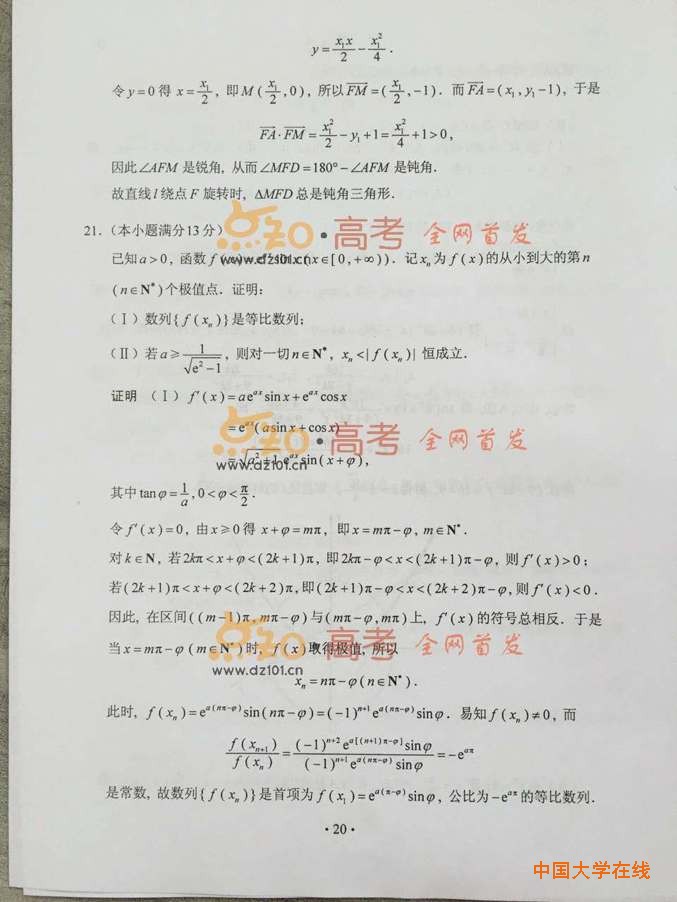 y = x₁x/2 − x₁²/4 .
令 y=0 得 x = x₁/2 , 即 M ( x₁/2 , 0 ) , 所以 FM⃗ = ( x₁/2 , −1 ) . 而 FA⃗ = ( x₁ , y₁−1 ) , 于是
FA⃗ · FM⃗ = x₁²/2 − y₁ + 1 = x₁²/4 + 1 > 0 ,
因此 ∠AFM 是锐角, 从而 ∠MFD = 180° − ∠AFM 是钝角.
故直线 l 绕点 F 旋转时, ΔMFD 总是钝角三角形.
21. (本小题满分 13 分)
点知·高考 全网首发
已知 a>0 , 函数 f (x) sinx ( x∈[ 0 , +∞ )) . 记 xₙ 为 f ( x ) 的从小到大的第 n
www.dz101.cn
( n∈N* ) 个极值点. 证明:
(Ⅰ) 数列 { f ( xₙ ) } 是等比数列;
(Ⅱ) 若 a ⩾ 1/√(e²−1) , 则对一切 n∈N* , xₙ < | f ( xₙ ) | 恒成立.
证明 (Ⅰ) f′( x ) = ae^{ax} sin x + e^{ax} cos x
= e^{ax} ( a sin x + cos x )
点知·高考 全网首发
= √(a²+1) e^{ax} sin ( x+φ ) ,
www.dz101.cn
其中 tan φ = 1/a , 0 < φ < π/2 .
令 f′( x ) = 0 , 由 x⩾0 得 x+φ = mπ , 即 x = mπ−φ , m∈N* .
对 k∈N , 若 2kπ < x+φ < ( 2k+1 )π , 即 2kπ−φ < x < ( 2k+1 )π−φ , 则 f′( x ) > 0 ;
若 ( 2k+1 )π < x+φ < ( 2k+2 )π , 即 ( 2k+1 )π−φ < x < ( 2k+2 )π−φ , 则 f′( x ) < 0 .
因此, 在区间 ( ( m−1 )π , mπ−φ ) 与 ( mπ−φ , mπ ) 上, f′( x ) 的符号总相反. 于是
点知·高考 全网首发
当 x = mπ−φ ( m∈N* ) 时, f ( x ) 取得极值, 所以
www.dz101.cn
xₙ = nπ−φ ( n∈N* ) .
此时, f ( xₙ ) = e^{a(nπ−φ)} sin ( nπ−φ ) = ( −1 )^{n+1} e^{a(nπ−φ)} sin φ . 易知 f ( xₙ ) ≠ 0 , 而
f ( xₙ₊₁ ) / f ( xₙ ) = ( −1 )^{n+2} e^{a[(n+1)π−φ]} sin φ / ( −1 )^{n+1} e^{a(nπ−φ)} sin φ = −e^{aπ}
是常数, 故数列 { f ( xₙ ) } 是首项为 f ( x₁ ) = e^{a(π−φ)} sin φ , 公比为 −e^{aπ} 的等比数列.
· 20 ·
中国大学在线